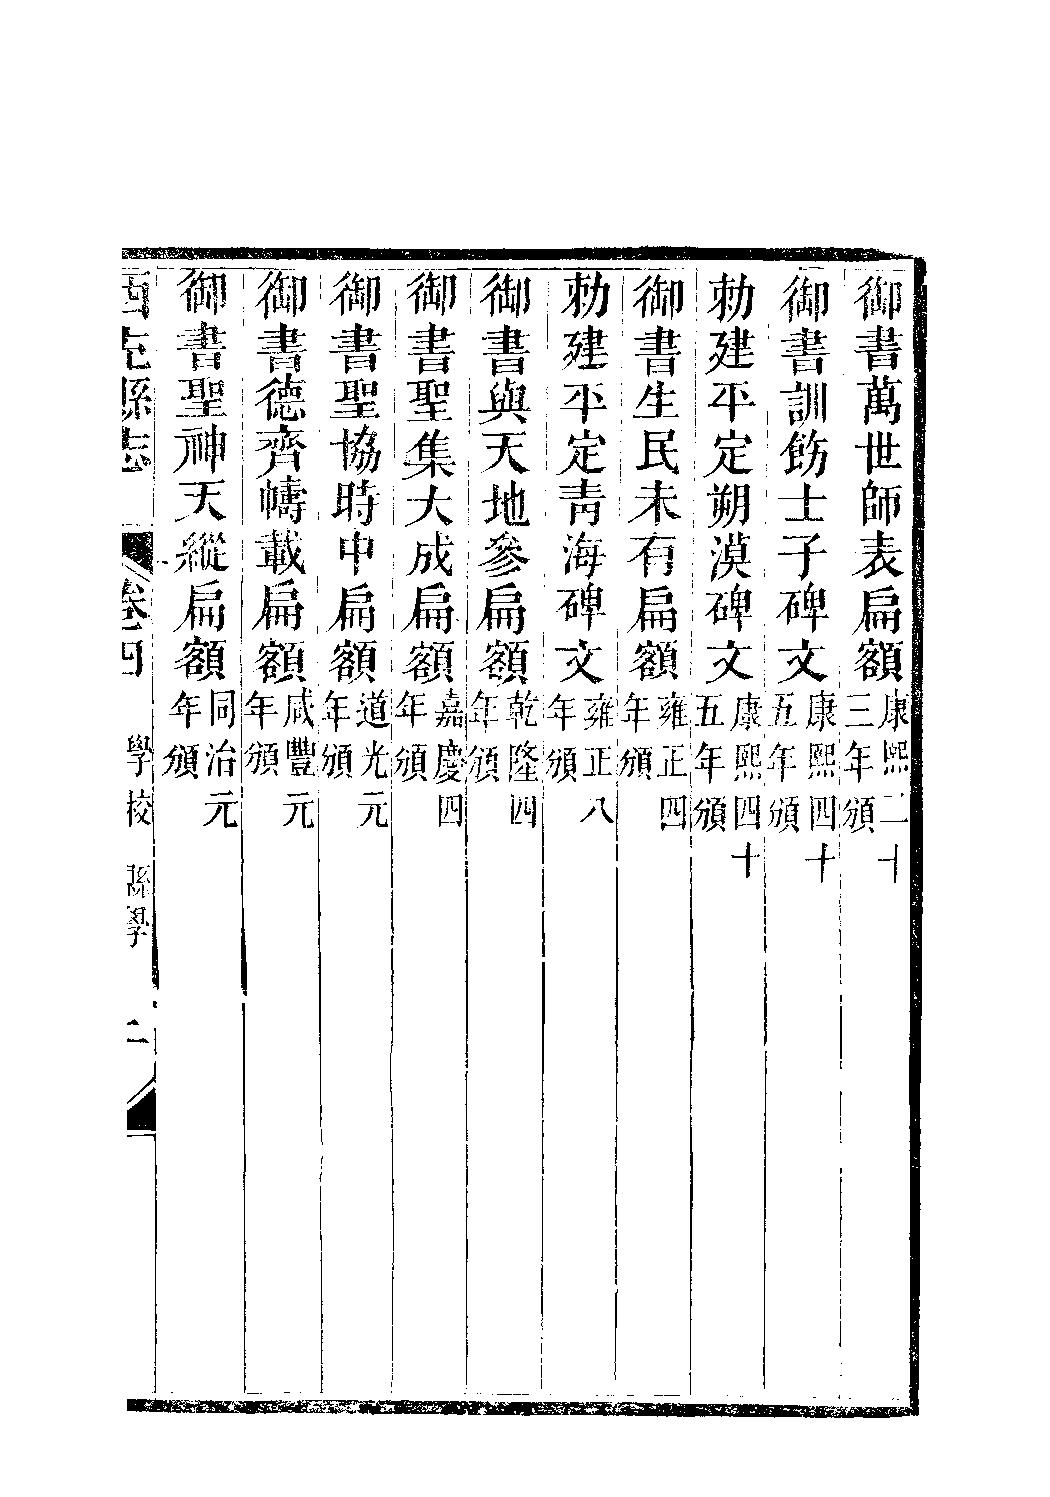 御書萬世師表扁額康熙二十三年頒
御書訓飭士子碑文康熙四十五年頒
勅建平定朔漠碑文康熙四十五年頒
御書生民未有扁額雍正四年頒
勅建平定青海碑文雍正八年頒
御書與天地參扁額乾隆四年頒
御書聖集大成扁額嘉慶四年頒
御書聖協時中扁額道光元年頒
御書德齊幬載扁額咸豐元年頒
御書聖神天縱扁額同治元年頒
縣志 卷四 學校 縣學 二